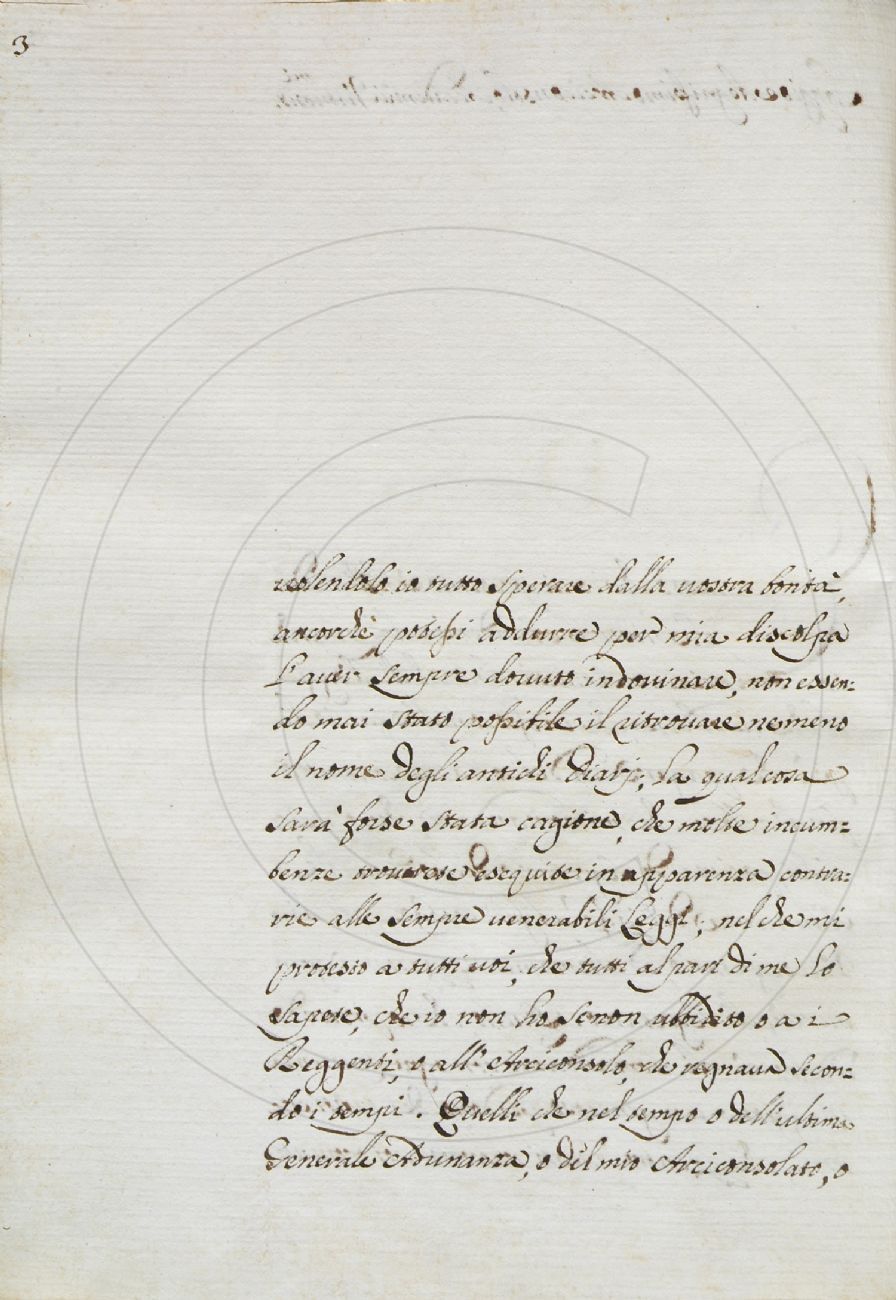 3
volendolo io tutto sperare dalla vostra bontà,
ancorchè potessi addurre per mia discolpa
l'aver sempre dovuto indovinare, non essen=
do mai stato possibile il ritrovare nemeno
il nome degli antichi Diarj; la qual cosa
sarà forse stata cagione, che molte incum=
benze troverete eseguite in apparenza contra=
rie alle sempre venerabili Leggi; nel che mi
protesto a tutti voi, che tutti al pari di me lo
sapete, che io non ho se non ubbidito o a i
Reggenti, o all'Arciconsolo, che regnava secon=
do i tempi. Quelli che nel tempo o dell'ultima
Generale Adunanza, o del mio Arciconsolato, o